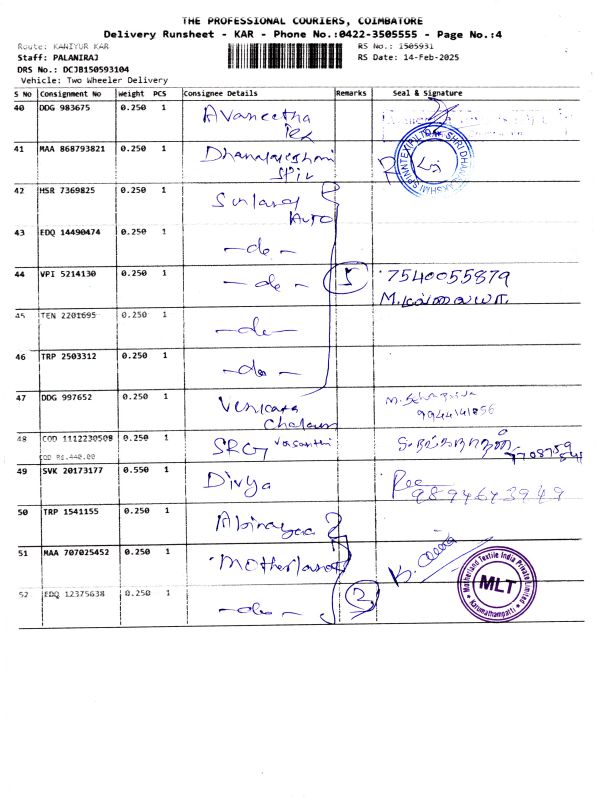 THE PROFESSIONAL COURIERS, COIMBATORE
Delivery Runsheet - KAR - Phone No.:0422-3505555 - Page No.:4
Route: KANIYUR KAR
RS No.: 1505931
Staff: PALANIRAJ
RS Date: 14-Feb-2025
DRS No.: DCJB150593104
Vehicle: Two Wheeler Delivery
S No Consignment No Weight PCS Consignee Details Remarks Seal & Signature
40 DDG 983675 0.250 1
41 MAA 868793821 0.250 1
SHRI DHANALAKSHMI SPINNTEX (P) LTD
42 HSR 7369825 0.250 1 Auto
43 EDQ 14490474 0.250 1 -do-
44 VPI 5214130 0.250 1 -do- 5 7540055879
45 TEN 2201695 0.250 1 -do-
46 TRP 2503312 0.250 1 -do-
47 DDG 997652 0.250 1
48 COD 1112230508 0.250 1 SRG Vasanthi
COD Rs.440.00
49 SVK 20173177 0.550 1 Divya 9894643949
50 TRP 1541155 0.250 1 Abinayaa
51 MAA 707025452 0.250 1 Motherland
52 EDQ 12375638 0.250 1 -do- 3
Motherland Textile India Private Limited
MLT
Karumathampatti